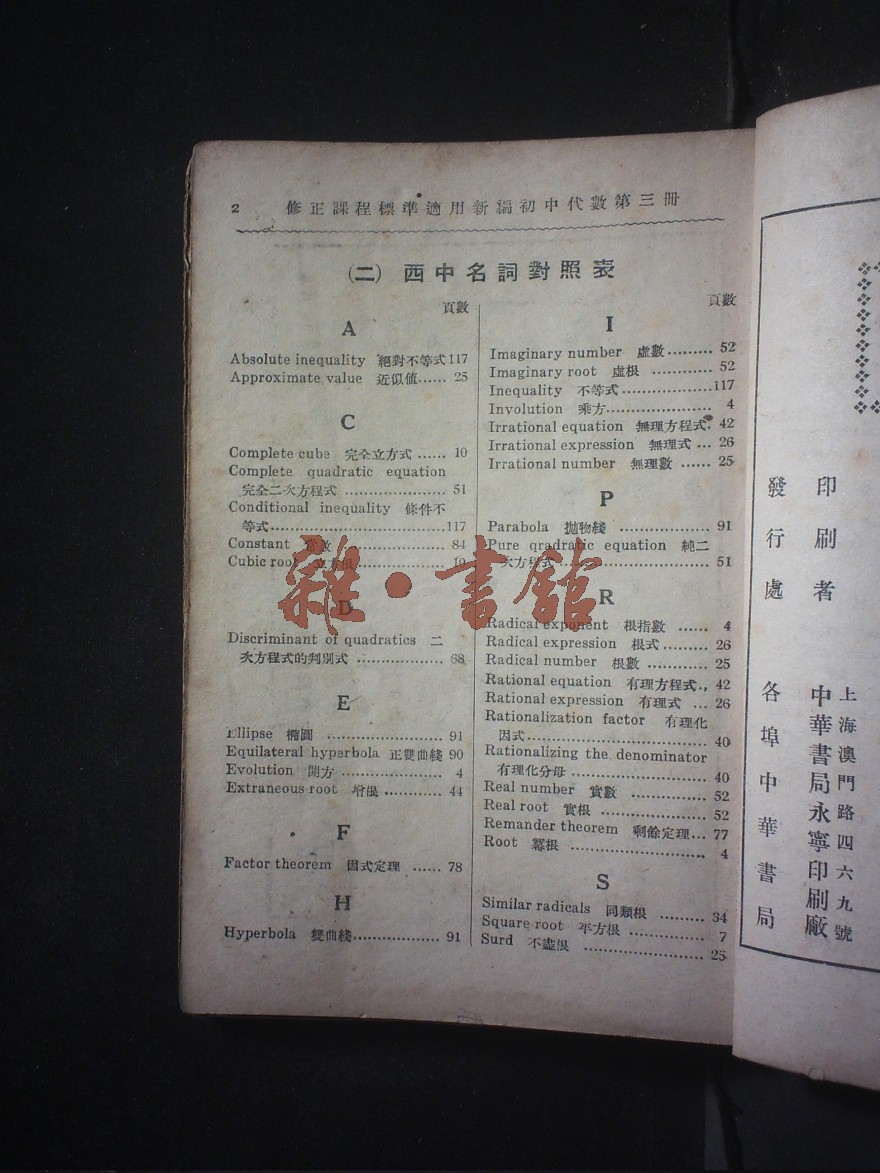 2 修正課程標準適用新編初中代數第三冊
(二) 西中名詞對照表
頁數
A
Absolute inequality 絕對不等式 117
Approximate value 近似值...... 25
C
Complete cube 完全立方式 ...... 10
Complete quadratic equation
完全二次方程式 .................. 51
Conditional inequality 條件不
等式..............................117
Constant 常數 .................. 84
Cubic root 立方根.................. 10
D
Discriminant of quadratics 二
次方程式的判別式 .................. 68
E
Ellipse 橢圓 .................. 91
Equilateral hyperbola 正雙曲綫 90
Evolution 開方 .................. 4
Extraneous root 增根............ 44
F
Factor theorem 因式定理 ...... 78
H
Hyperbola 雙曲綫.................. 91
頁數
I
Imaginary number 虛數......... 52
Imaginary root 虛根 ............ 52
Inequality 不等式..................117
Involution 乘方..................... 4
Irrational equation 無理方程式. 42
Irrational expression 無理式 ... 26
Irrational number 無理數 ...... 25
P
Parabola 拋物綫 .................. 91
Pure qradratic equation 純二
次方程式 ........................... 51
R
Radical exponent 根指數 ...... 4
Radical expression 根式......... 26
Radical number 根數 ............ 25
Rational equation 有理方程式., 42
Rational expression 有理式 ... 26
Rationalization factor 有理化
因式.................................... 40
Rationalizing the denominator
有理化分母 ........................... 40
Real number 實數 ............... 52
Real root 實根 ..................... 52
Remander theorem 剩餘定理... 77
Root 冪根 ........................... 4
S
Similar radicals 同類根 ......... 34
Square root 平方根 ............... 7
Surd 不盡根 ........................ 25
雜·書館
印刷者 上海澳門路四六九號
中華書局永寧印刷廠
發行處 各埠中華書局